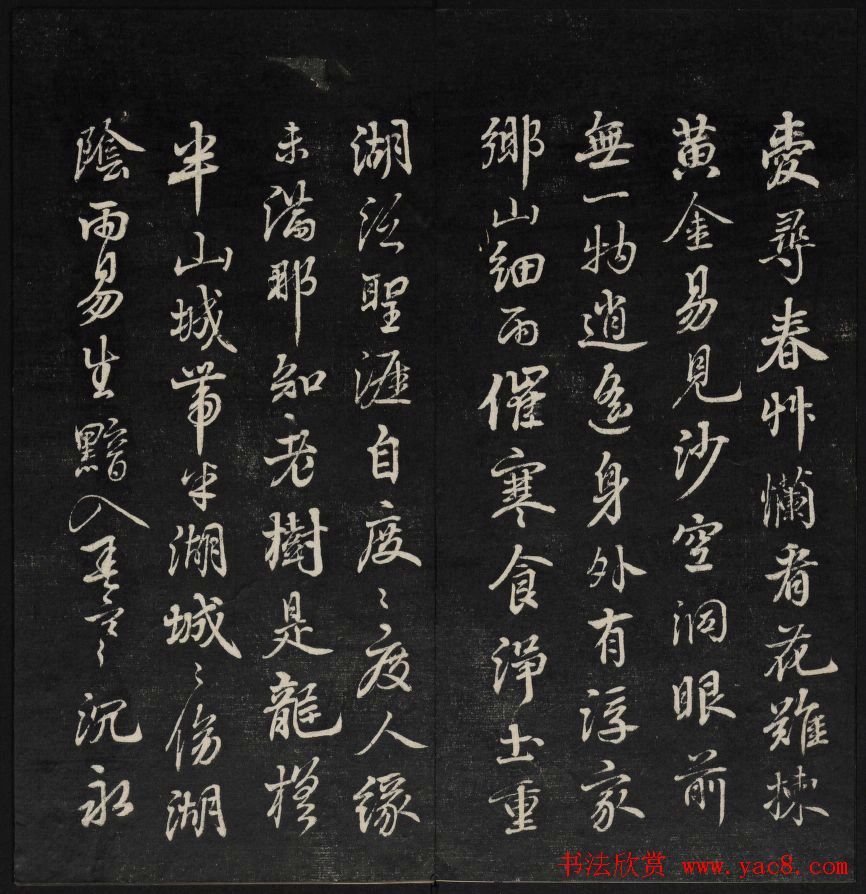 爱尋春艸懶看花難揀
黄金易見沙空洞眼前
無一物逍遥身外有浮家
鄉山細雨催寒食淨土重
湖泛聖涯自度〻度人緣
未滿那知老樹是龍標
半山城帶半湖城〻傍湖
陰雨易生黯入沉永
书法欣赏 www.yac8.com